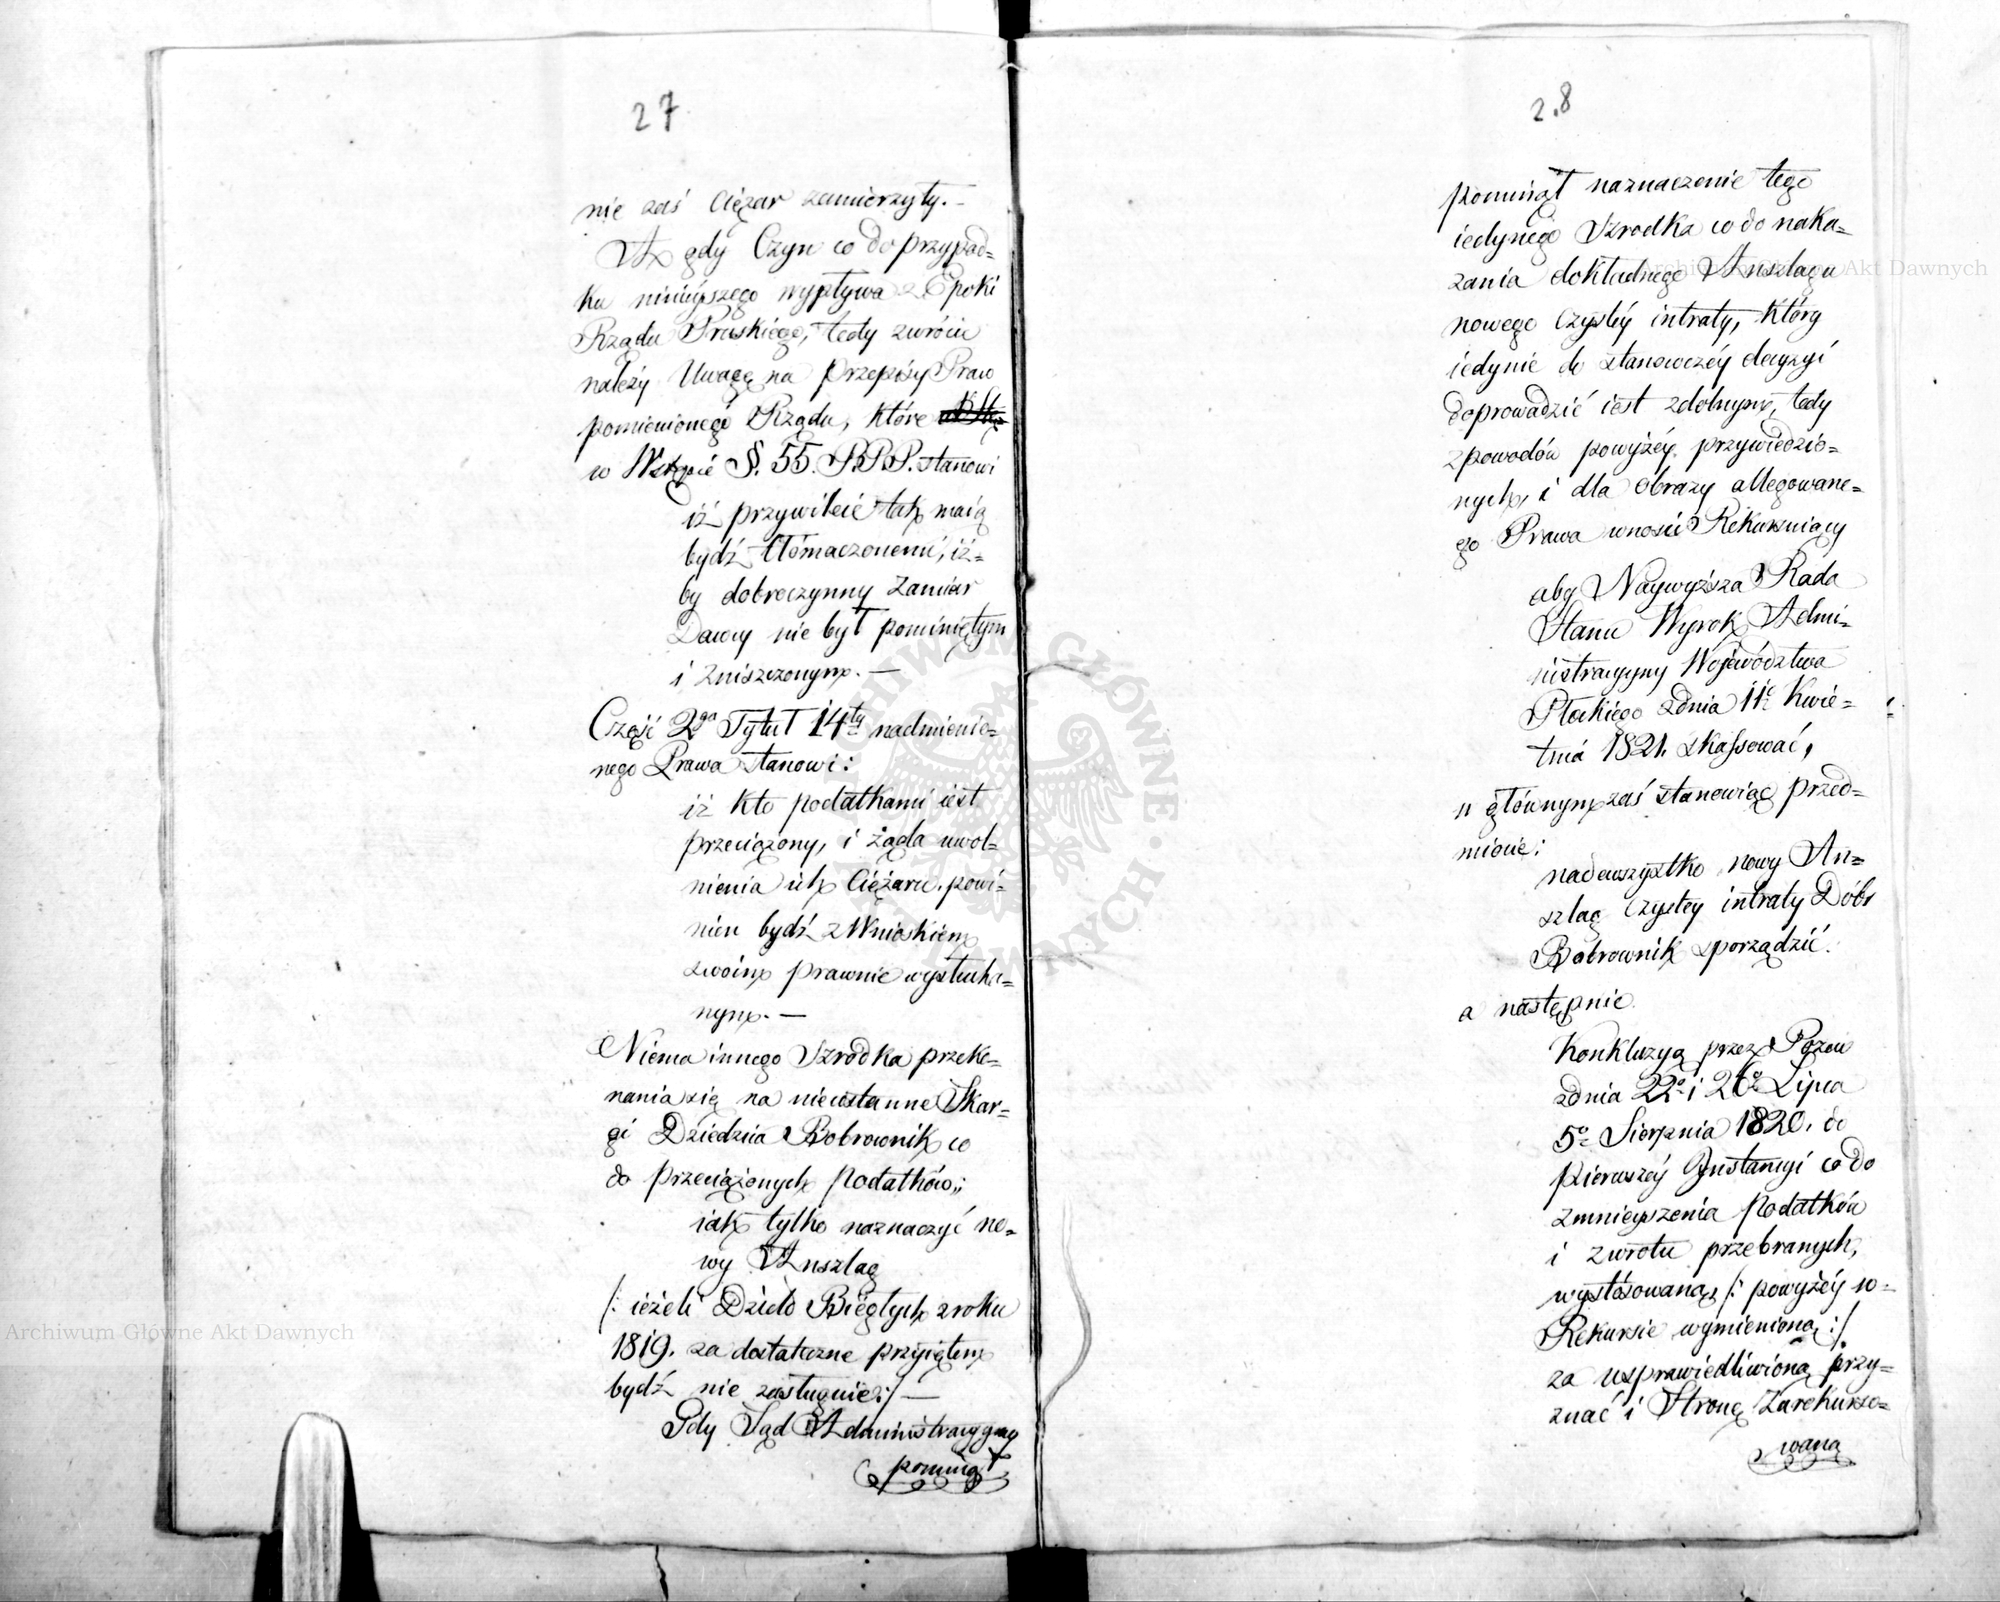 27
nie zaś Ciężar zamierzyły. –
A gdy Czyn co do przypad=
ku niniejszego wypływa z Epoki
Rządu Pruskiego, tedy zwrócić
należy Uwagę na Przepisy Praw
pomienionego Rządu, które
w Wstępie §. 55. P.P.P. stanowi
iż przywileie tak maią
bydź tłómaczonemi, iż=
by dobroczynny Zamiar
Dawcy nie był pominiętym
i zniszczonym. —
Część 2ga Tytuł 14ty nadmienio=
nego Prawa stanowi:
iż kto podatkami iest
przeciążony, i żąda uwol=
nienia ich Ciężaru, powi=
nien bydź z Wnioskiem
swoim prawnie wysłucha=
nym. —
Niema innego Szrodka przeko=
nania się na nieustanne Skar=
gi Dziedzica Bobrownik co
do przeciążonych Podatków;
iak tylko naznaczyć no=
wy Anszlag
/: ieżeli Dzieło Biegłych z roku
1819. za dostateczne przyiętem
bydź nie zasługuie :/ —
Gdy Sąd Administracyyny
pominął
28
pominął naznaczenie tego
iedynego Szrodka co do naka=
zania dokładnego Anszlagu
nowego Czystéy intraty, który
iedynie do stanowczéy decyzyi
doprowadzić iest zdolnym, tedy
z powodów powyżéy przywiedzio=
nych, i dla obrazy allegowane=
go Prawa wnosi Rekursuiący
aby Naywyższa Rada
Stanu Wyrok Admi=
nistracyyny Województwa
Płockiego z dnia 11o Kwie=
tnia 1821. skassować,
w głównym zaś stanowiąc przed=
miocie:
nadewszystko nowy An=
szlag Czystey intraty Dóbr
Bobrownik sporządzić.
a następnie
Konkluzyą przez Pozew
z dnia 22o i 26o Lipca
5o Sierpnia 1820. do
pierwszéy Instancyi co do
zmnieyszenia Podatków
i zwrotu przebranych,
wystósowaną, /: powyżéy w=
Rekursie wymienioną :/
za usprawiedliwioną przy=
znać i Stronę Zarekurso=
waną
Archiwum Główne Akt Dawnych
Archiwum Główne Akt Dawnych
ARCHIWUM GŁÓWNE AKT DAWNYCH